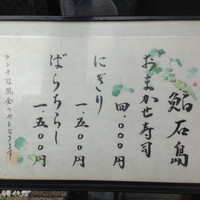 鮨石島
おまかせ寿司
四.〇〇〇円
にぎり
一.五〇〇円
ばらちらし
一.五〇〇円
ランチは現金のみとなります